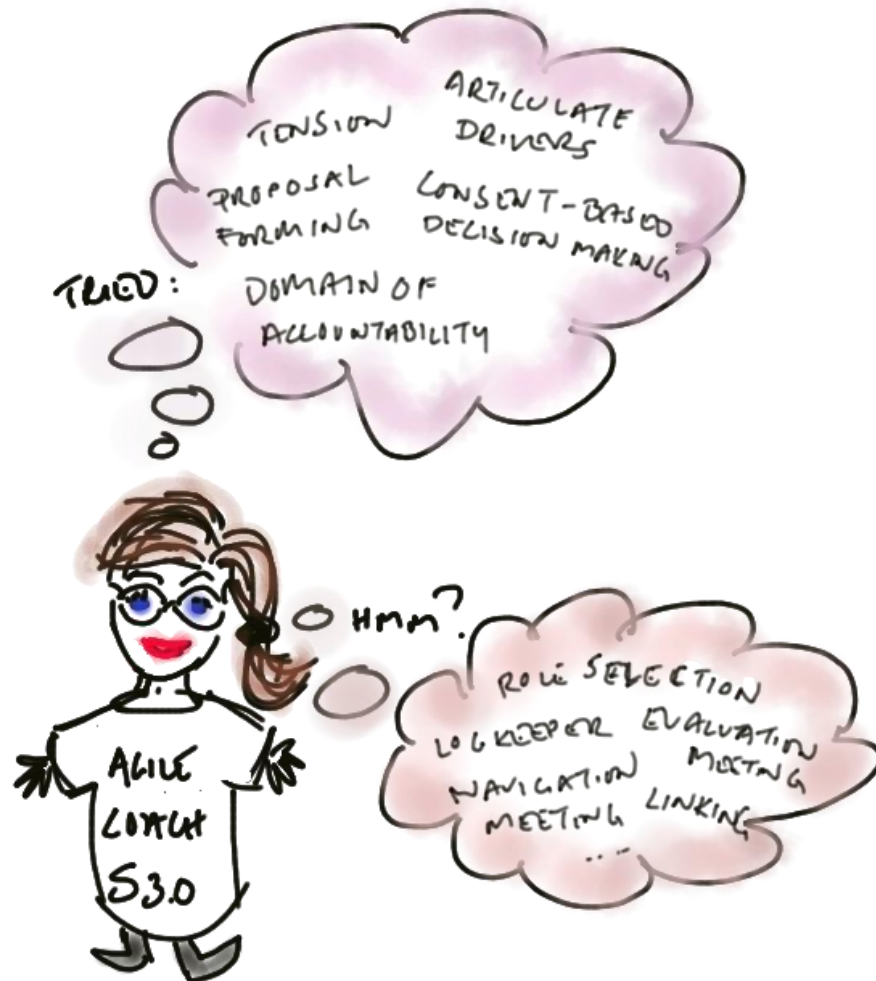 TENSION
ARTICULATE
DRIVERS
PROPOSAL
FORMING
CONSENT-BASED
DECISION MAKING
TRIED:
DOMAIN OF
ACCOUNTABILITY
HMM?
ROLE SELECTION
LOGKEEPER
EVALUATION
MEETING
NAVIGATION
MEETING
LINKING
...
AGILE
COACH
S3.0